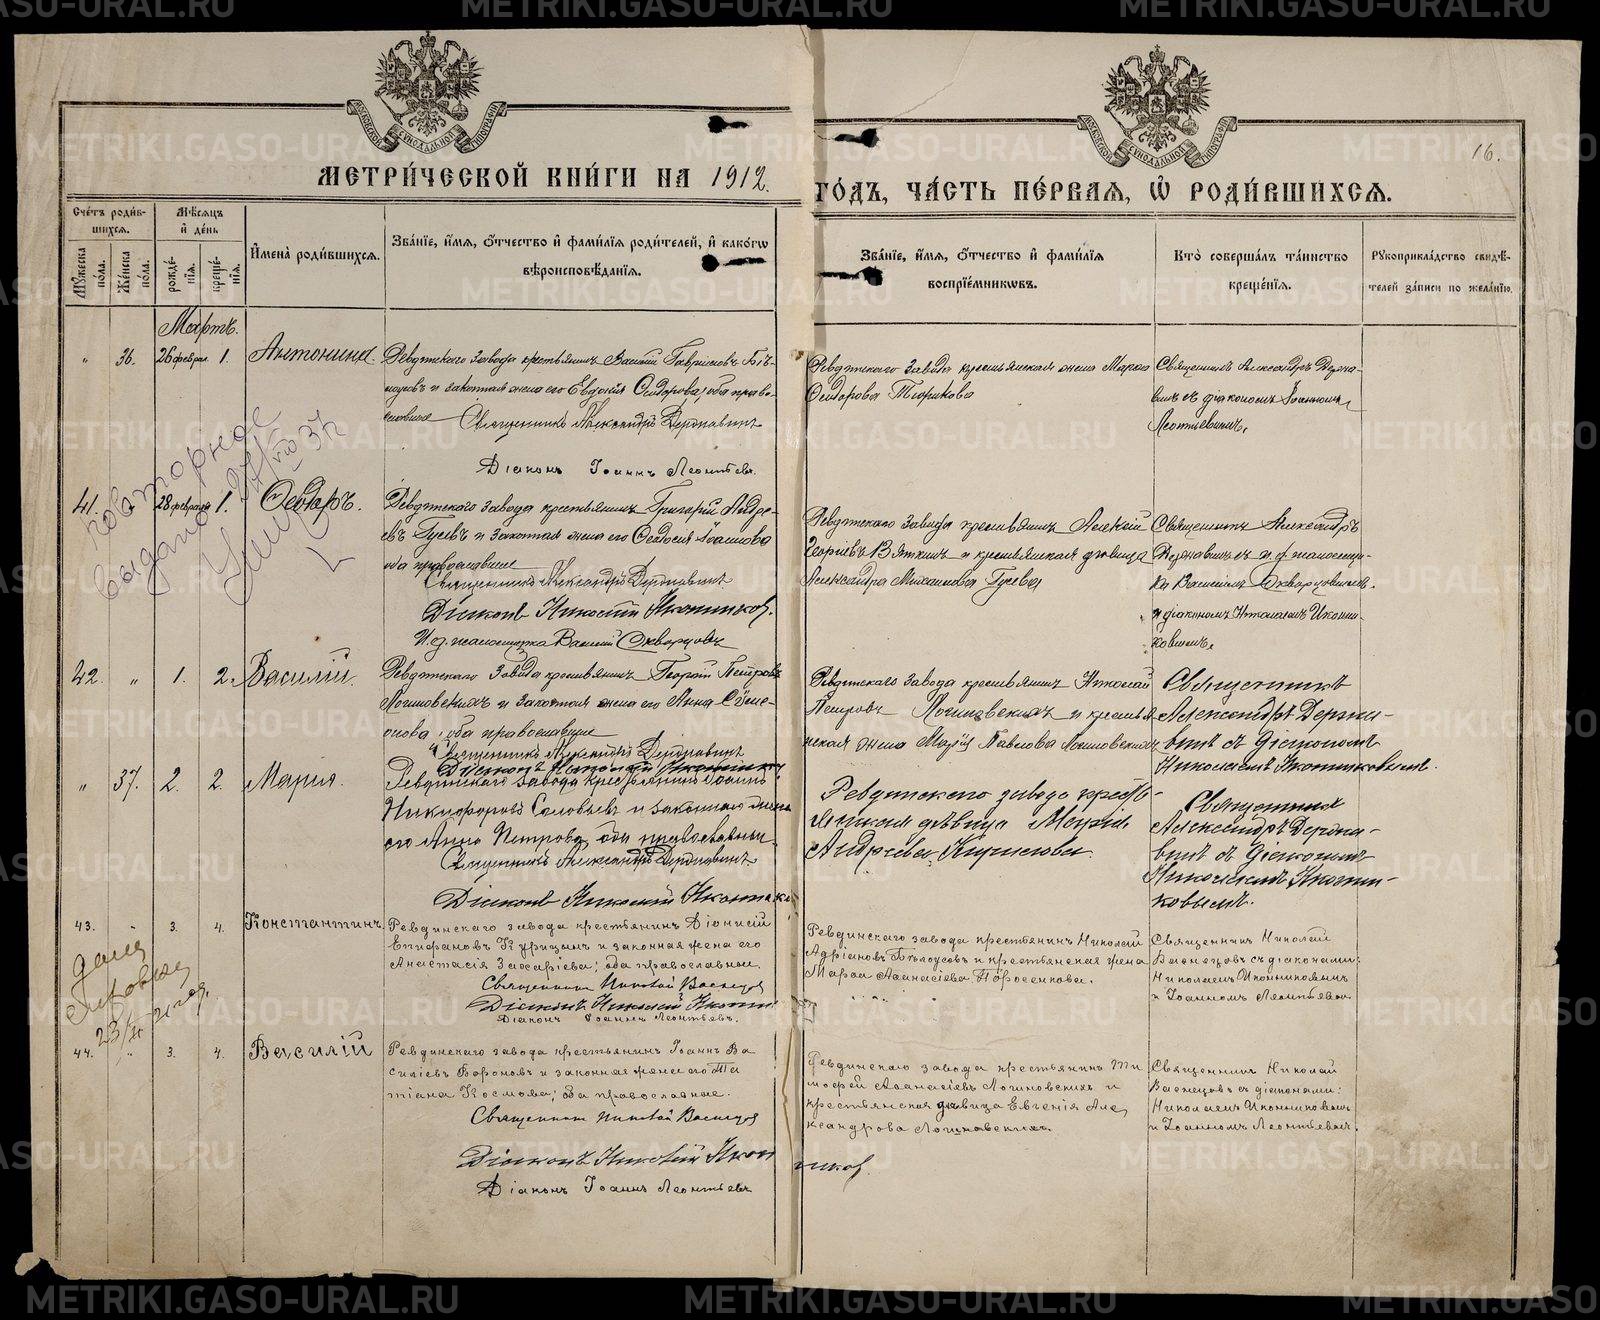 METRIKI.GASO-URAL.RU
МЕТРИ́ЧЕСКОЙ КНИ́ГИ НА 1912 ГО́ДЪ, ЧА́СТЬ ПЕ́РВАЯ, Ѡ РОДИ́ВШИХСЯ.
16.
Сче́тъ роди́вшихся.
Мѣ́сяцъ и҆ де́нь
И҆мена̀ роди́вшихся.
Зва́нїе, и҆́мя, ѻ҆́тчество и҆ фами́лїя роди́телей, и҆ како́гѡ
вѣроисповѣ́данїя.
Зва́нїе, и҆́мя, ѻ҆́тчество и҆ фами́лїя
воспрїе́мникѡвъ.
Кто̀ соверша́лъ та́инство
креще́нїя.
Рукоприкла́дство свидѣ́телей за́писи по жела́нїю.
Мꙋ́жеска по́ла.
Же́нска по́ла.
рожде́нїя.
креще́нїя.
Мартъ.
" 36. 26 феврал. 1. Антонина.
Ревдинскаго завода крестьянинъ Василій Гавриловъ
и законная жена его Евдокія Ѳеодорова, оба православные
Священникъ Александръ Державинъ
Діаконъ Іоаннъ Леонтьевъ.
Ревдинскаго завода крестьянская жена Марѳа
Ѳеодорова
Священникъ Александръ Державинъ съ діакономъ Іоанномъ
Леонтьевымъ.
Повторное
выдано
41. " 28 февраля 1. Ѳеодоръ.
Ревдинскаго завода крестьянинъ Григорій Андреевъ Гусевъ и законная жена его Ѳеодосія Іоаннова
оба православные
Священникъ Александръ Державинъ
Діаконъ Николай Иконниковъ.
И. д. псаломщика Василій Скворцовъ
Ревдинскаго завода крестьянинъ Алексій
Георгіевъ Вяткинъ и крестьянская дѣвица
Александра Михаилова Гусева
Священникъ Александръ
Державинъ съ и. д. псаломщика Василіемъ Скворцовымъ
и діакономъ Николаемъ Иконниковымъ.
42. " 1. 2. Василій.
Ревдинскаго завода крестьянинъ Георгій Петровъ
Логиновскихъ и законная жена его Анна Сѵмеонова, оба православные
Священникъ Александръ Державинъ
Діаконъ Николай Иконниковъ
Ревдинскаго завода крестьянинъ Николай
Петровъ Логиновскихъ и крестьянская жена Марія Павлова Логиновскихъ
Священникъ
Александръ Державинъ съ діакономъ
Николаемъ Иконниковымъ.
" 37. 2. 2. Марія.
Ревдинскаго завода крестьянинъ Іоаннъ
Никифоровъ Соловьевъ и законная жена
его Анна Петрова, оба православные.
Священникъ Александръ Державинъ
Діаконъ Николай Иконников
Ревдинскаго завода крестьянская дѣвица Марія
Андреева
Священникъ
Александръ Державинъ съ діакономъ
Николаемъ Иконниковымъ.
43. " 3. 4. Константинъ
Ревдинскаго завода крестьянинъ Діонисій
Епифановъ Курицынъ и законная жена его
Анастасія Захаріева; оба православные.
Священникъ Николай Васнецов
Діаконъ Николай Иконни
Діаконъ Іоаннъ Леонтьевъ.
Ревдинскаго завода крестьянинъ Николай
Адріановъ Бѣлоусовъ и крестьянская жена
Марѳа Аѳанасіева Поросенкова.
Священникъ Николай
Васнецовъ съ діаконами:
Николаемъ Иконниковымъ
и Іоанномъ Леонтьевымъ
44. " 3. 4. Василій
Ревдинскаго завода крестьянинъ Іоаннъ Ва
силіевъ Бороновъ и законная жена его Та
тіана Космова; оба православные.
Священникъ Николай Васнецов
Діаконъ Николай Иконниковъ.
Діаконъ Іоаннъ Леонтьевъ
Ревдинскаго завода крестьянинъ Ти
моѳей Аѳанасіевъ Логиновскихъ и
крестьянская дѣвица Евгенія Але
ксандрова Логиновскихъ.
Священникъ Николай
Васнецовъ съ діаконами:
Николаемъ Иконниковымъ
и Іоанномъ Леонтьевымъ.